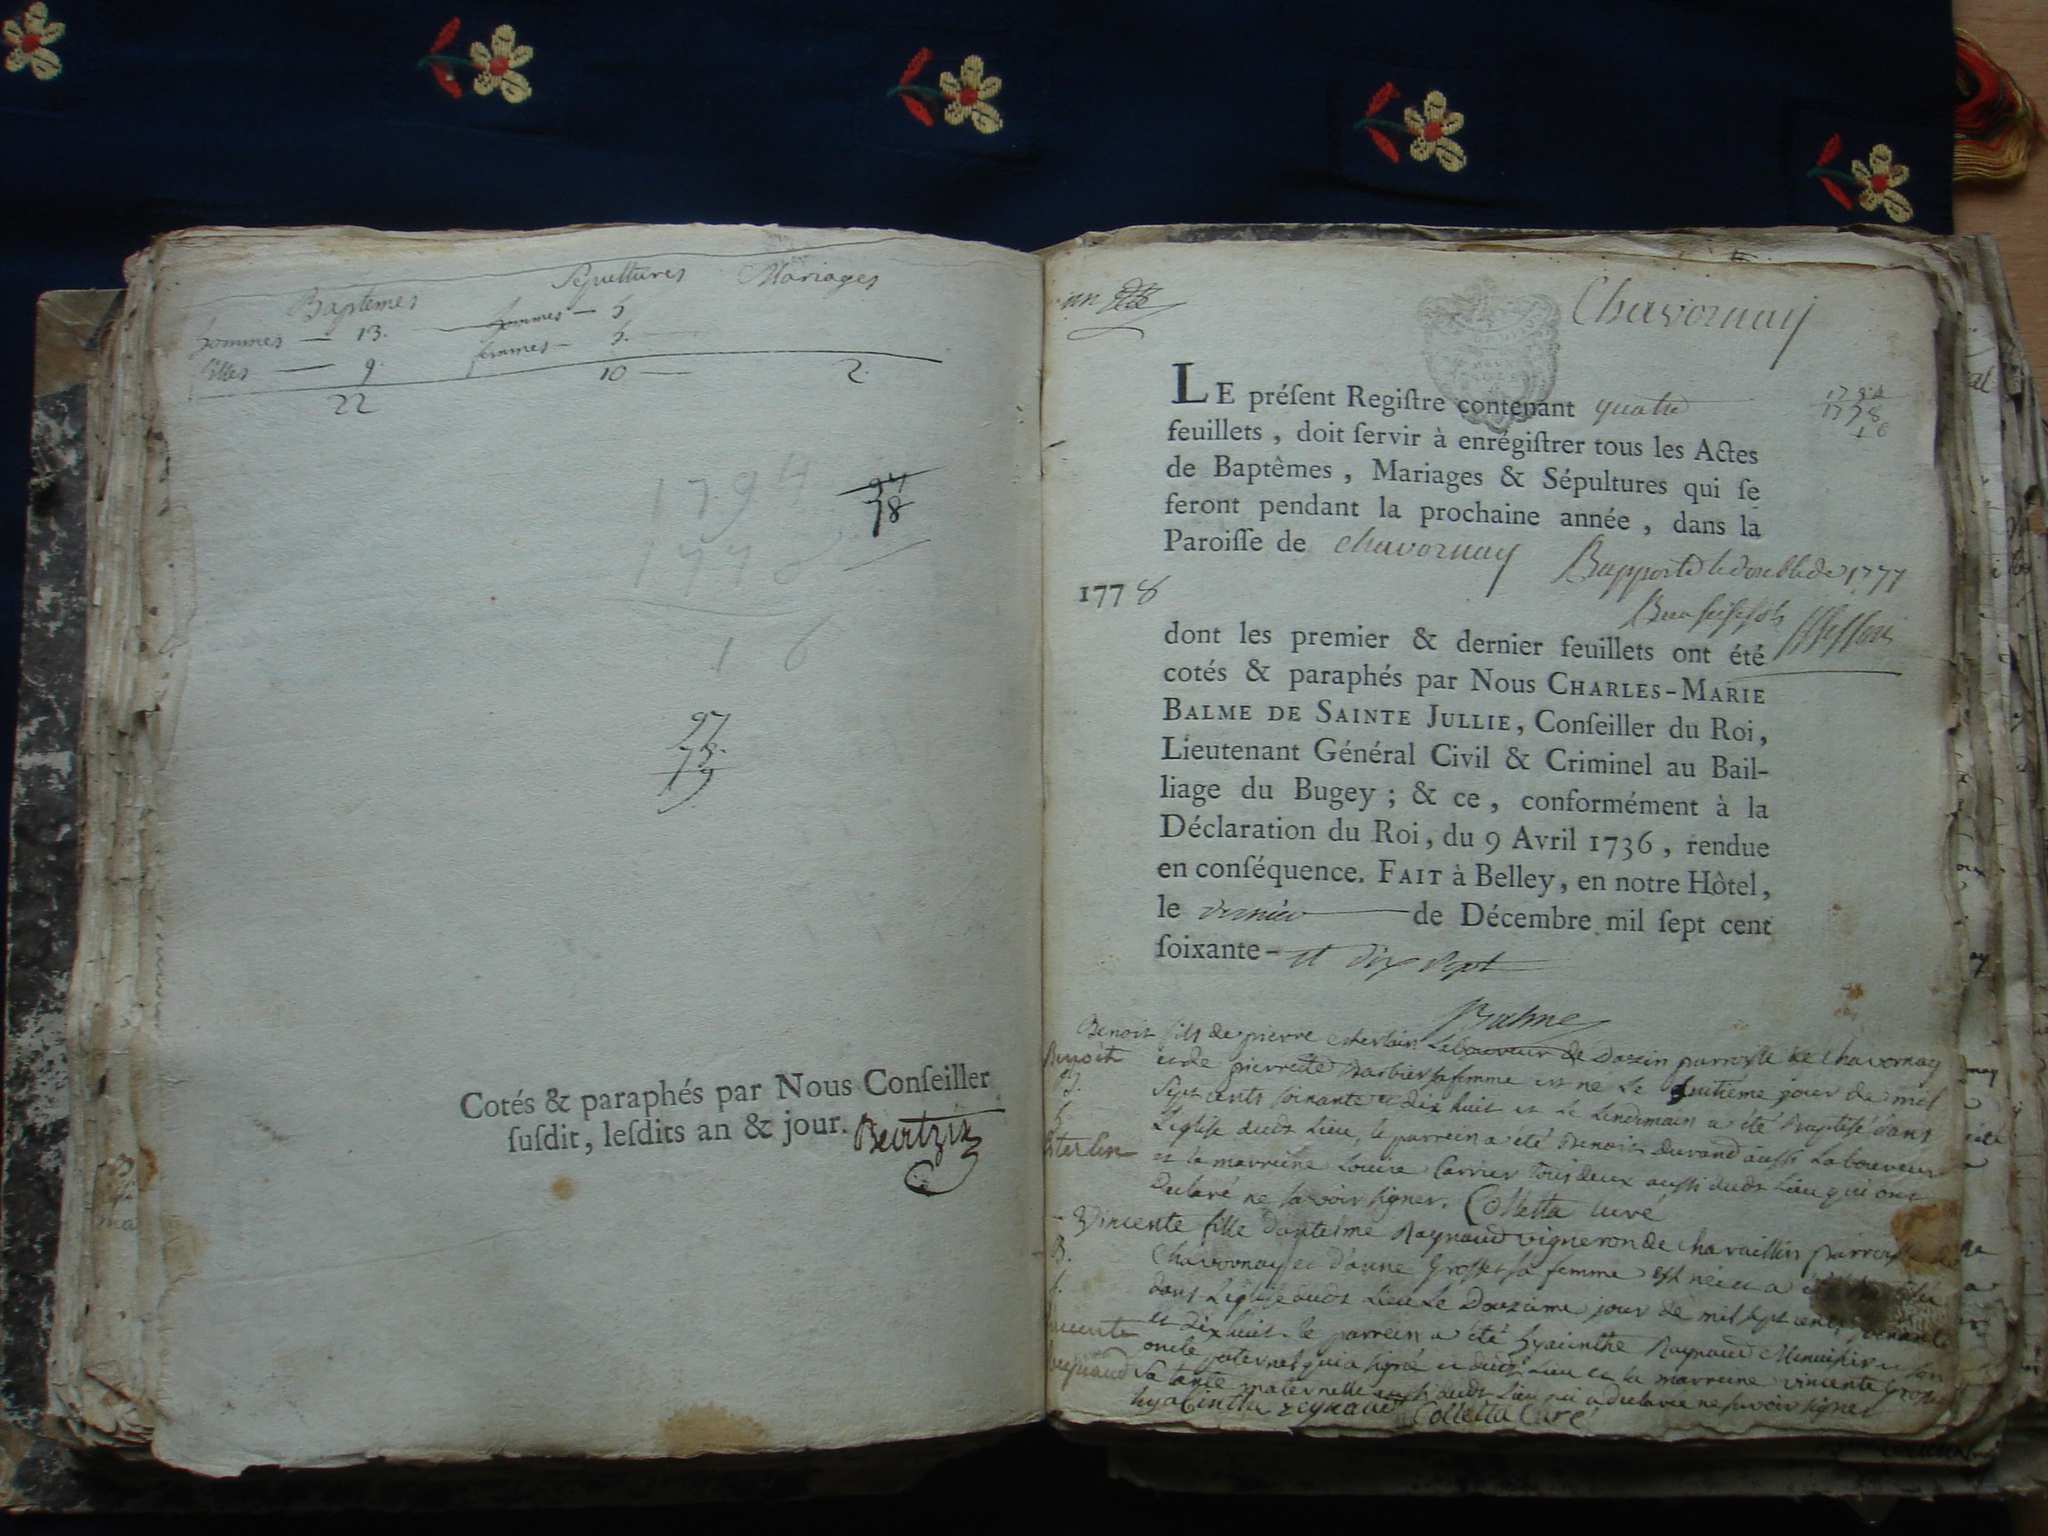 Baptemes Sepultures Mariages
hommes — 13. hommes — 5
filles — 9. femmes — 5.
22 10 — 2
1794
1778
1 6
94
78
97
78
19
Cotés & paraphés par Nous Conſeiller
ſuſdit, leſdits an & jour.
Chavornay
LE préſent Regiſtre contenant quatre
feuillets, doit ſervir à enrégiſtrer tous les Actes
de Baptêmes, Mariages & Sépultures qui ſe
feront pendant la prochaine année, dans la
Paroiſſe de chavornay
Rapporté le double de 1777
1794
1778
16
1778
dont les premier & dernier feuillets ont été
cotés & paraphés par Nous CHARLES-MARIE
BALME DE SAINTE JULLIE, Conſeiller du Roi,
Lieutenant Général Civil & Criminel au Bail-
liage du Bugey; & ce, conformément à la
Déclaration du Roi, du 9 Avril 1736, rendue
en conſéquence. FAIT à Belley, en notre Hôtel,
le dernier de Décembre mil ſept cent
ſoixante- et dix sept
Balme
Benoit fils de pierre Esterlin Laboureur de Dazin parroisse de chavornay
Benoit
et de pierrette Barbier sa femme est né le huitieme jour de mil
sept cents soixante et dix huit et le lendemain a été Baptisé dans
L'eglise dudt Lieu, le parrein a été Benoit Durand aussi Laboureur
Esterlin
et la marreine Louise Carrier tous deux aussi dudt Lieu qui ont
Declaré ne savoir signer. Colletta curé
Vincente fille d'antelme Raynaud vigneron de chavaillin parroisse de
B.
Chavornay et d'anne Grosset sa femme est née et a été
dans L'eglise dudt Lieu Le Douzieme jour de mil sept cents soixante
et dix huit. le parrein a été hyacinthe Raynaud Menuisier son
oncle paternel qui a signé dudt Lieu et la marreine vincente
sa tante maternelle aussi dudt Lieu qui a declaré ne savoir signer
hyacintha reynaud Colletta Curé